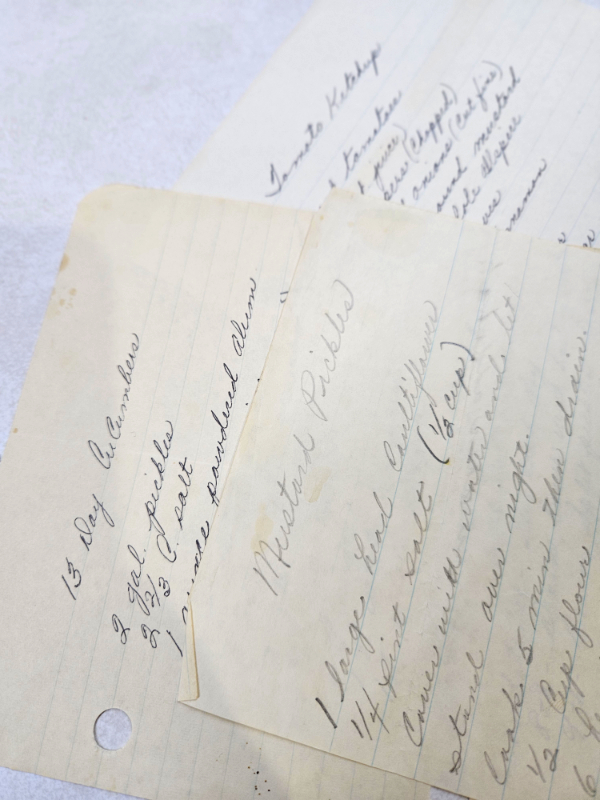 Tomato Ketchup
tomatoes
juice)
(chopped)
onions (cut fine)
mustard
13 Day CuCumbers
2 gal. pickles
2 2/3 C. salt
1 powdered alum
Mustard Pickles
1 large head caulliflower
1/4 pint salt (1/2 cup)
Cover with water and let
stand over night.
Cook 5 min then drain.
1/2 Cup flour
6